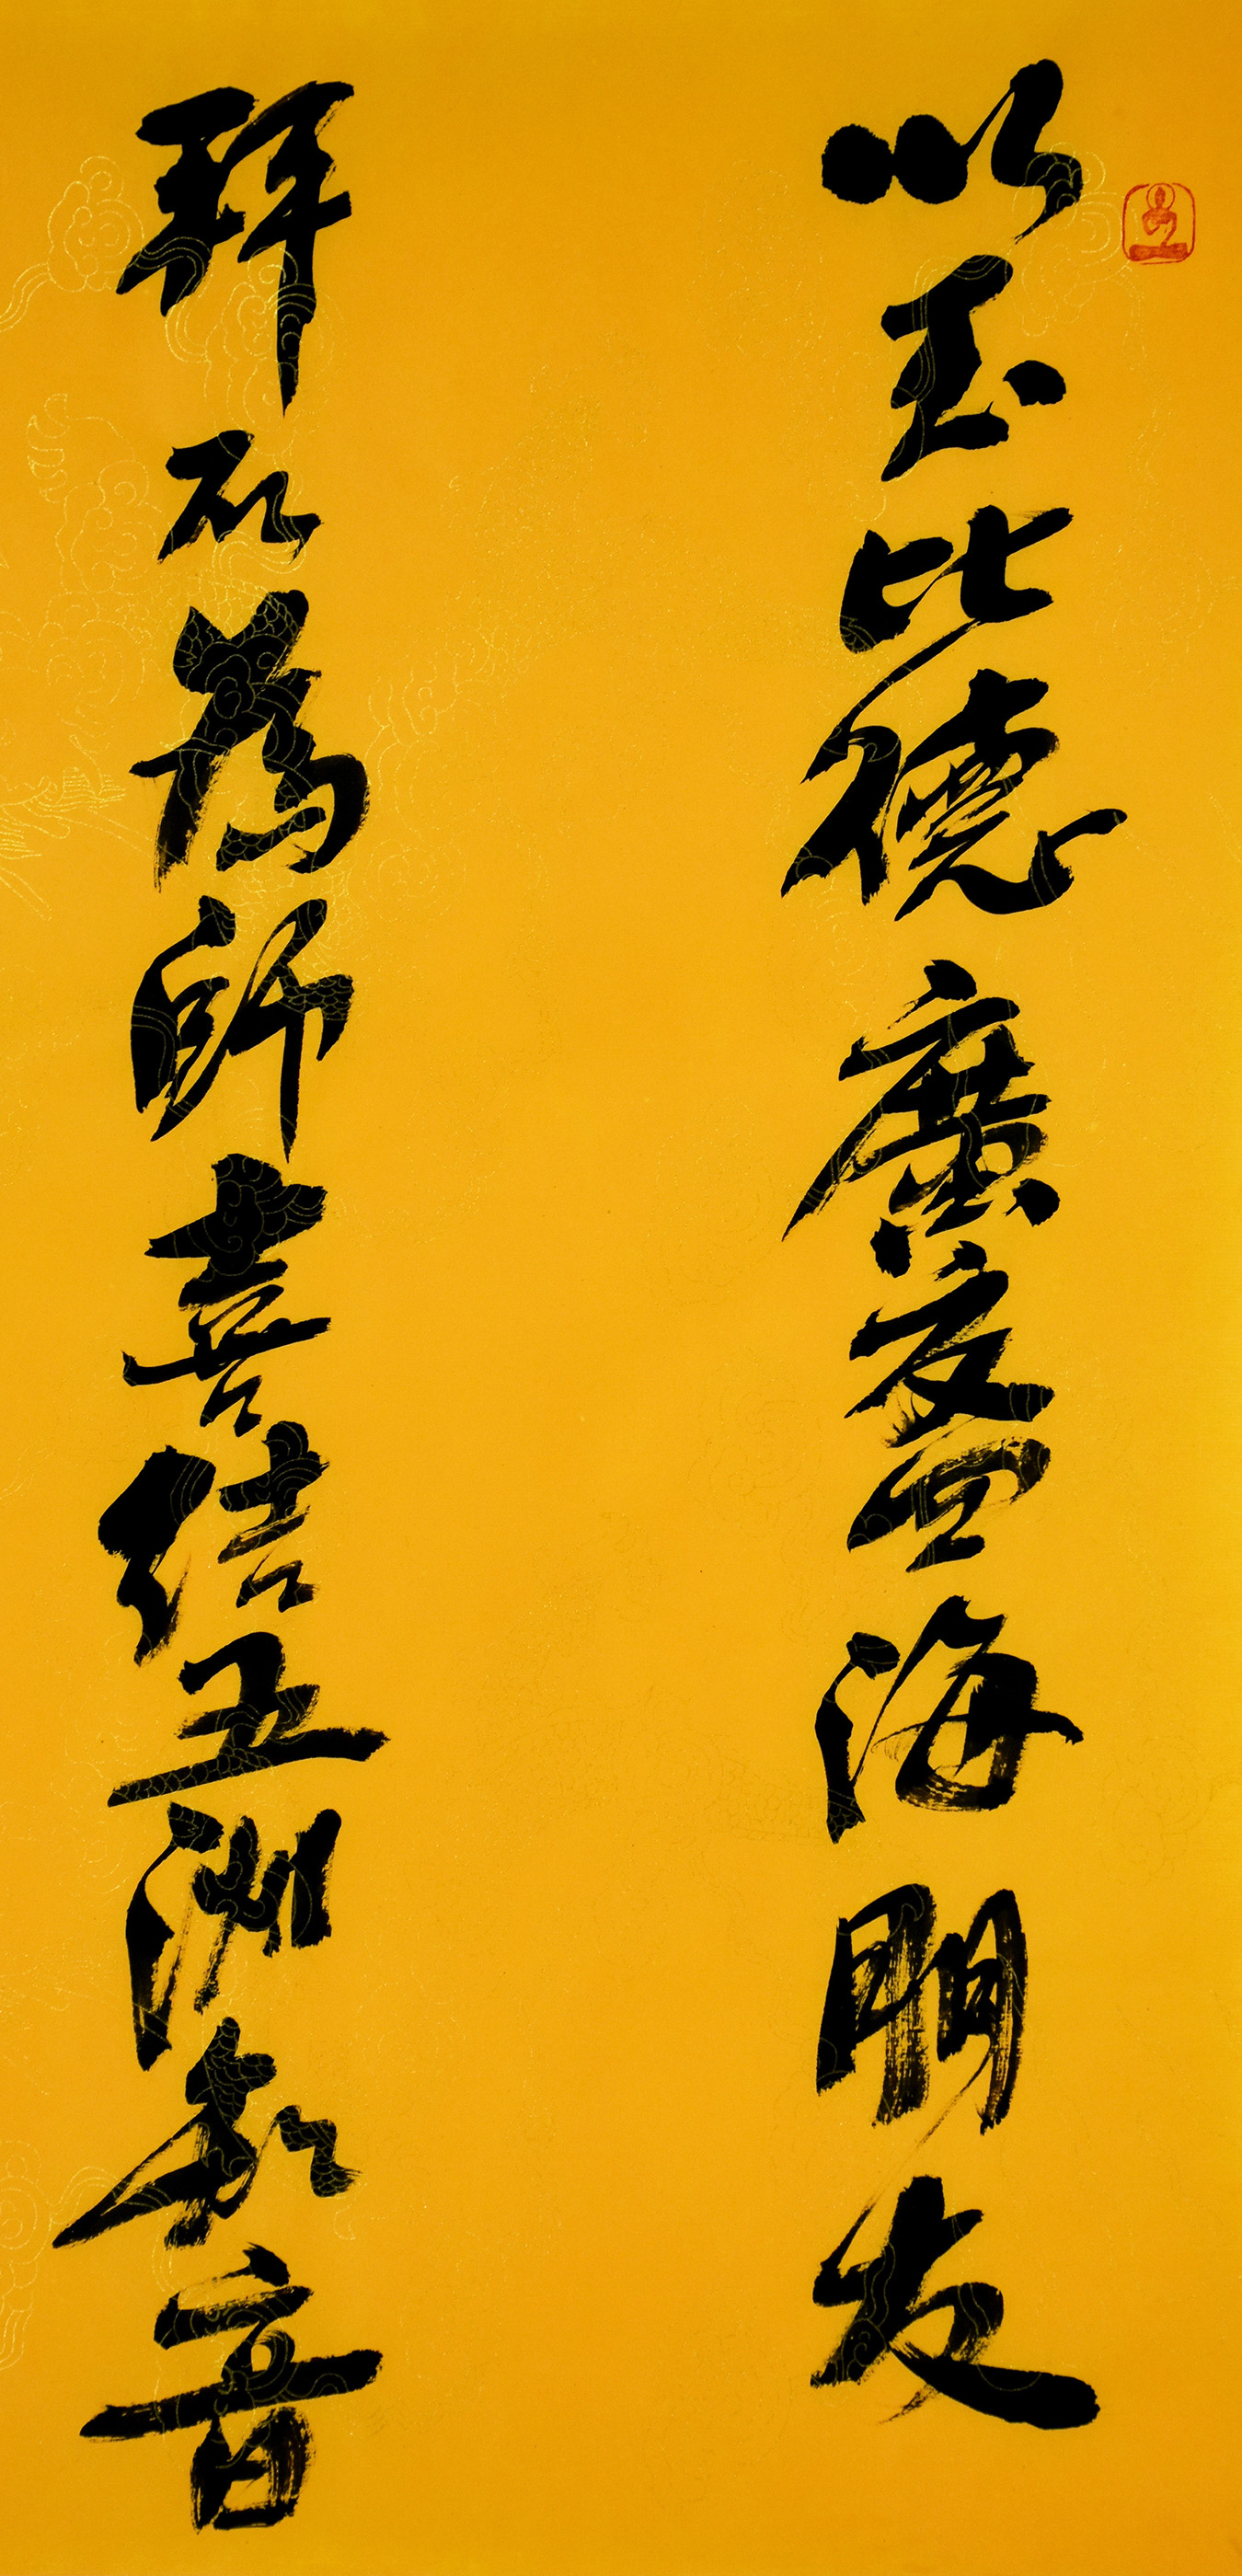 以玉比德廣交四海朋友
拜石為師喜結五洲知音